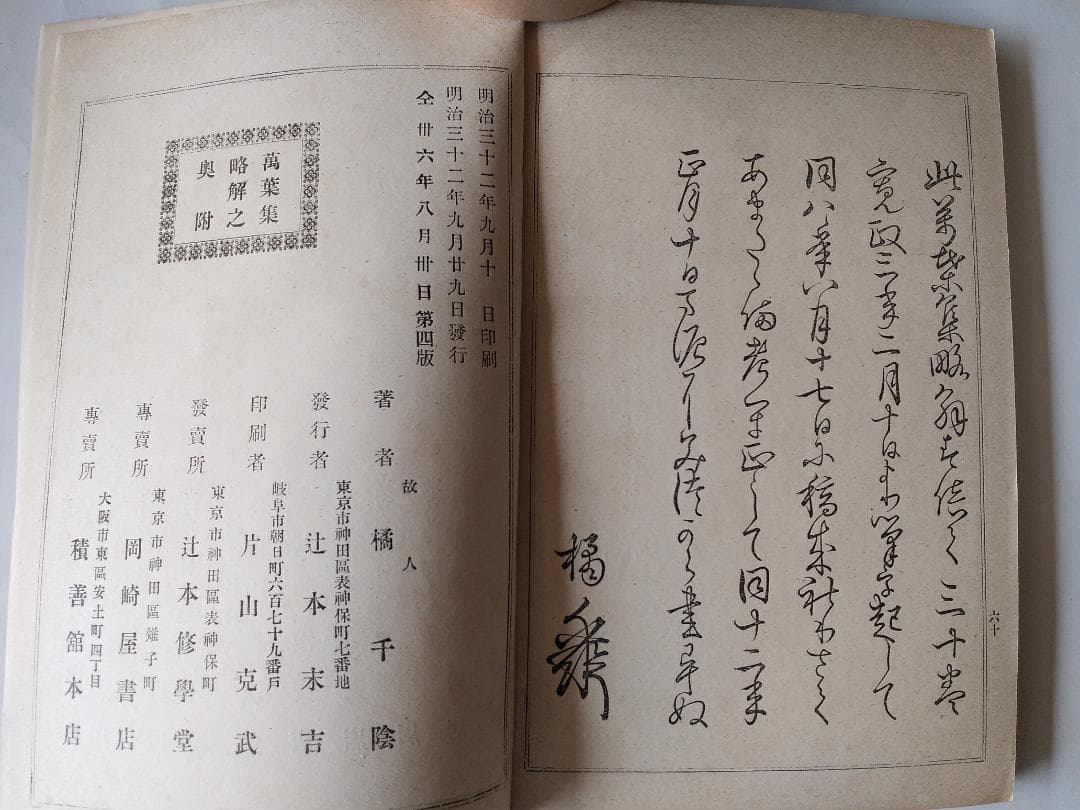 此萬葉集略解 三十巻
寛政三年二月十日より筆を起して
同八年八月十七日に稿成
あまたゝひ考へ正して同十二年
正月十日 書畢ぬ
橘千蔭
六十
明治三十二年九月十 日印刷
明治三十二年九月廿九日發行
仝 卅六年八月卅日第四版
萬葉集
略解之
奥附
著者 故人 橘千陰
東京市神田區表神保町七番地
發行者 辻本末吉
岐阜市朝日町六百七十九番戸
印刷者 片山克武
東京市神田區表神保町
發賣所 辻本修學堂
東京市神田區雉子町
專賣所 岡崎屋書店
大阪市東區安土町四丁目
專賣所 積善舘本店